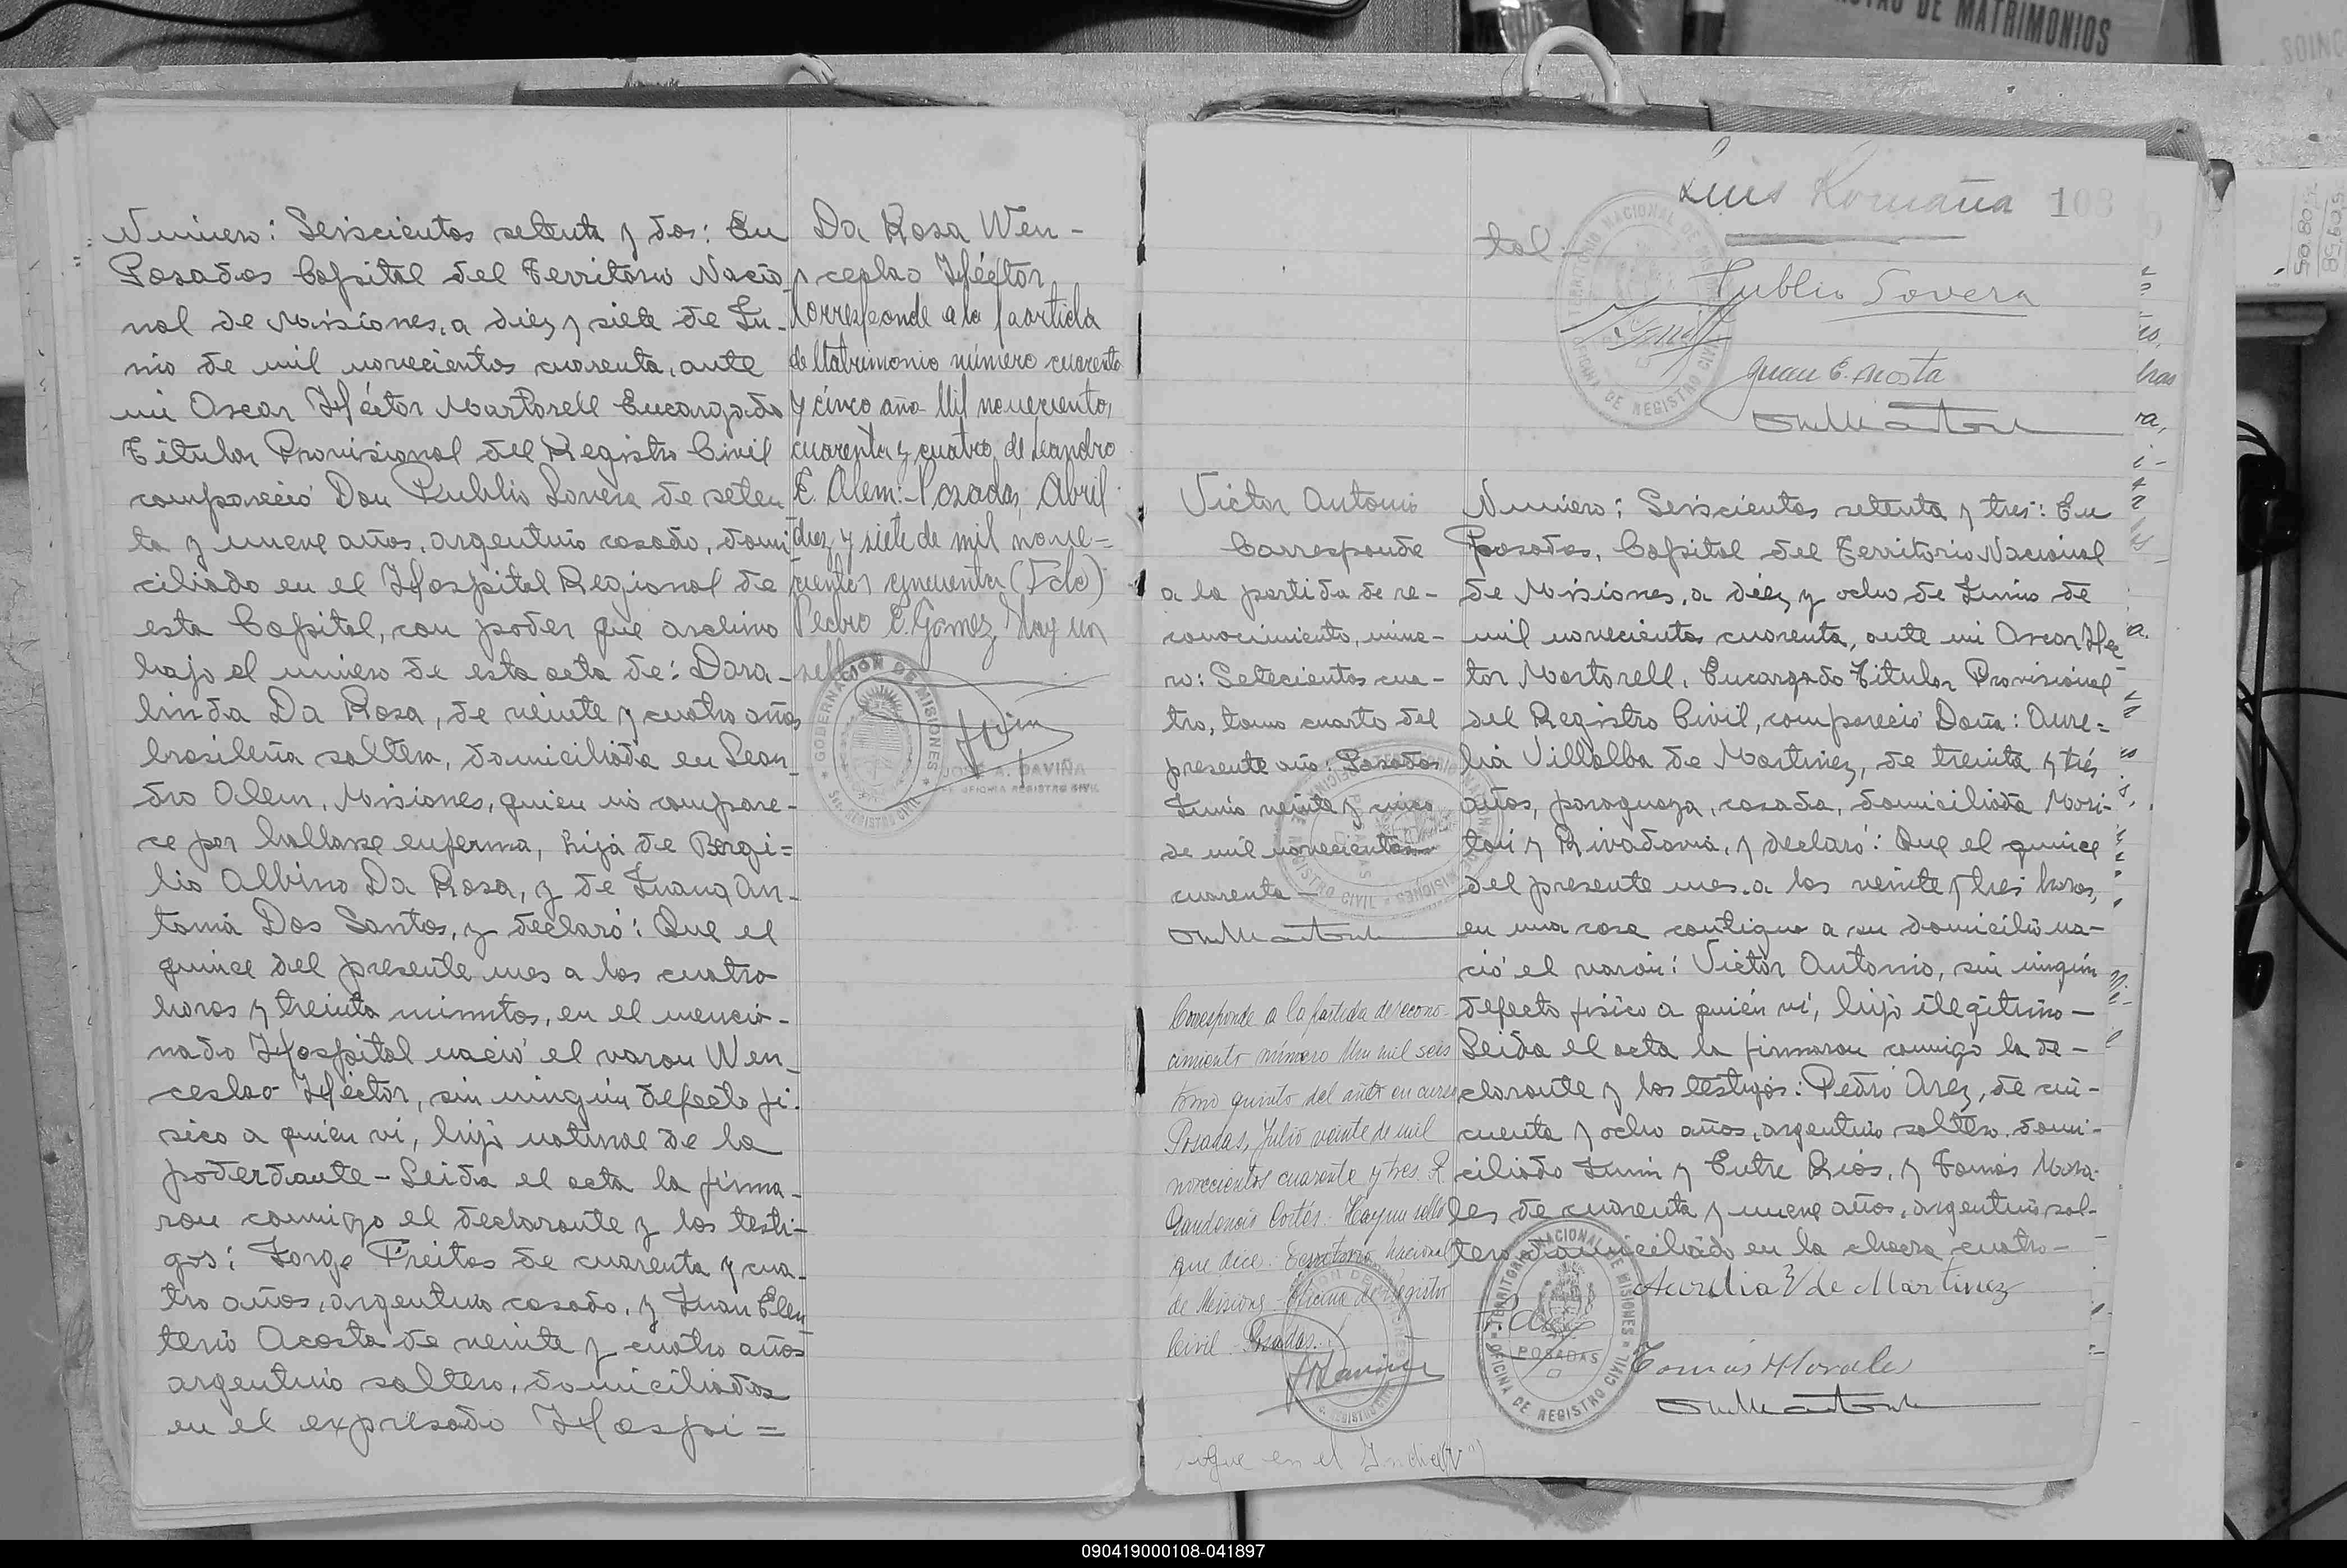 STAS DE MATRIMONIOS
Número: Seiscientos setenta y dos: En
Posadas Capital del Territorio Nacio-
nal de Misiones, a diez y siete de Ju-
nio de mil novecientos cuarenta, ante
mi Oscar Héctor Martorell Encargado
Titular Provisional del Registro Civil
compareció Don Publio Lovera de seten
ta y nueve años, argentino casado, domi
ciliado en el Hospital Regional de
esta Capital, con poder que archivo
bajo el número de esta acta de: Dora-
linda Da Rosa, de veinte y cuatro años
brasileña soltera, domiciliada en Lean-
dro Alem, Misiones, quien no compare-
ce por hallarse enferma, hija de Bergi=
lio Albino Da Rosa, y de Juana An-
tonia Dos Santos, y declaró: Que el
quince del presente mes a las cuatro
horas y treinta minutos, en el mencio-
nado Hospital nació el varon Wen-
ceslao Héctor, sin ningún defecto fi-
sico a quien vi, hijo natural de la
poderdante - Leida el acta la firma-
ron conmigo el declarante y los testi-
gos: Jorge Freitas de cuarenta y cua-
tro años, argentino casado, y Juan Eleu
terio Acosta de veinte y cuatro años
argentino soltero, domiciliados
en el expresado Hospi=
Da Rosa Wen-
ceslao Héctor
Corresponde a la partida
de Matrimonio número cuarenta
y cinco año Mil novecientos
cuarenta y cuatro, de Leandro
E. Alem:- Posadas, Abril
diez y siete de mil nove-
cientos cincuenta (Fdo)
Pedro E. Gomez Hay un
sello
GOBERNACION DE MISIONES
REGISTRO CIVIL
JOSÉ A. DAVIÑA
OFICINA REGISTRO CIVIL
Luis Romaña 108
tal
Publio Lovera
Juan E. Acosta
Victor Antonio
Corresponde
a la partida de re-
conocimiento, núme-
ro: Setecientos cua-
tro, tomo cuarto del
presente año: Posadas
Junio veinte y cinco
de mil novecientos
cuarenta
Corresponde a la partida de recono-
cimiento número Un mil seis
tomo quinto del año en curso
Posadas, Julio veinte de mil
novecientos cuarenta y tres. R.
Gaudencio Cortés. Hay un sello
que dice: Territorio Nacional
de Misiones - Oficina de Registro
Civil - Posadas.
sigue en el Indice (V)
Número: Seiscientos setenta y tres: En
Posadas, Capital del Territorio Nacional
de Misiones, a diez y ocho de Junio de
mil novecientos cuarenta, ante mi Oscar Héc
tor Martorell, Encargado Titular Provisional
del Registro Civil, compareció Doña: Aure=
lia Villalba de Martinez, de treinta y tres
años, paraguaya, casada, domiciliada Mori-
tan y Rivadavia, y declaró: Que el quince
del presente mes a las veinte y tres horas,
en una casa contigua a su domicilio na-
ció el varón: Victor Antonio, sin ningún
defecto fisico a quién vi, hijo ilegitimo -
Leida el acta la firmaron conmigo la de-
clarante y los testigos: Pedro Arez, de cin-
cuenta y ocho años, argentino soltero, domi-
ciliado Junin y Entre Rios, y Tomás Mora-
les de cuarenta y nueve años, argentino sol-
tero domiciliado en la chacra cuatro-
Aurelia V de Martinez
TERRITORIO NACIONAL DE MISIONES
POSADAS
OFICINA DE REGISTRO CIVIL
Tomás Morales
090419000108-041897